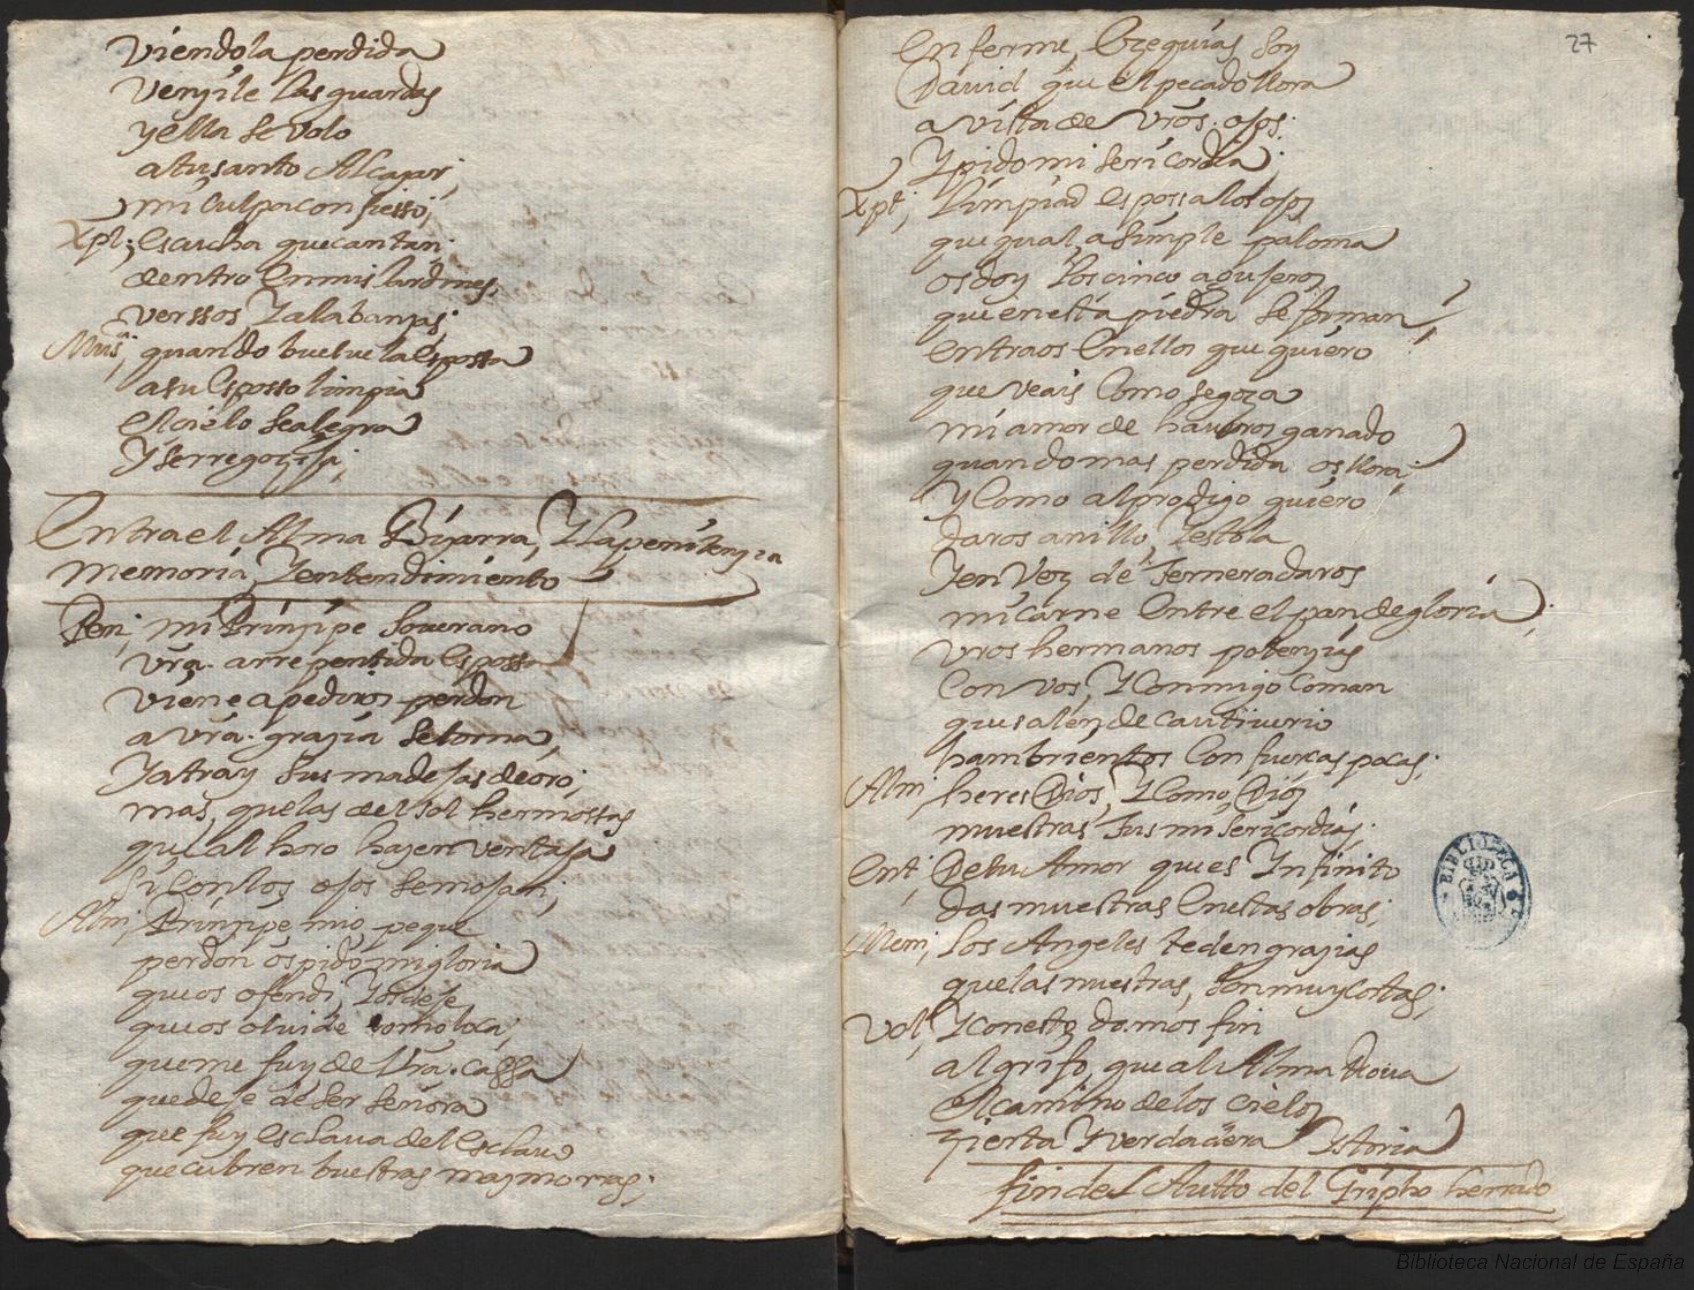 Viendola perdida
Vençile las guardas
y ella se volo
a tu santo Alcaçar;
mi culpa confiesso;
Xpt; escucha que cantan;
dentro en mis Jardines,
verssos, Y alabanças;
Mus; quando buelue la esposa
a su Esposso limpia
el cielo se alegra
Y se rregoçija;
Entra el Alma Biçarra, Y la penitençia
Memoria, Y entendimiento
Peni; mi Prinçipe Souerano
vra. arrepentida esposa
viene a pediros perdon
a vra. graçia se torna,
Y a tray sus madejas de oro;
mas, que las del sol hermossas
que al horo haçen ventaja
si con los ojos se mojan;
Alm; Prinçipe mio, peque
perdon os pido mi gloria
que os ofendi, Y os deje
que os oluide como loca;
que me fuy de Vra. cassa
que deje de ser señora
que fuy esclaua del esclauo
que cubren buestras mazmorras;
27
enferme, Ezequias soy
Dauid que el pecado llora
a vista de vros. ojos;
Y pido misericordia;
Xpt; limpiad esposa los ojos
que qual, a simple paloma
os doy los cinco agujeros
que en esta piedra se forman;
entraos en ellos que quiero
que veais como se goza
mi amor de haueros ganado
quando mas perdida os llora;
Y como al prodigo quiero
daros anillo, Y estola
Y en Vez de Ternera daros
mi carne entre el pan de gloria;
vros hermanos potençias
con vos, Y conmigo coman
que salen de cautiuerio
hambrientos con fuerças pocas;
Alm; heres Dios, Y como Dios
muestras Tus misericordias;
Ent; De tu Amor que es Infinito
das muestras en estas obras;
Mem; los Angeles te den graçias
que las nuestras, son muy cortas;
Vol; Y con esto damos fin
al grifo, que al Alma Roua
el camino de los cielos
zierta Y verdadera Ystoria
fin del Autto del Gripho herrado
BIBLIOTECA
Biblioteca Nacional de España